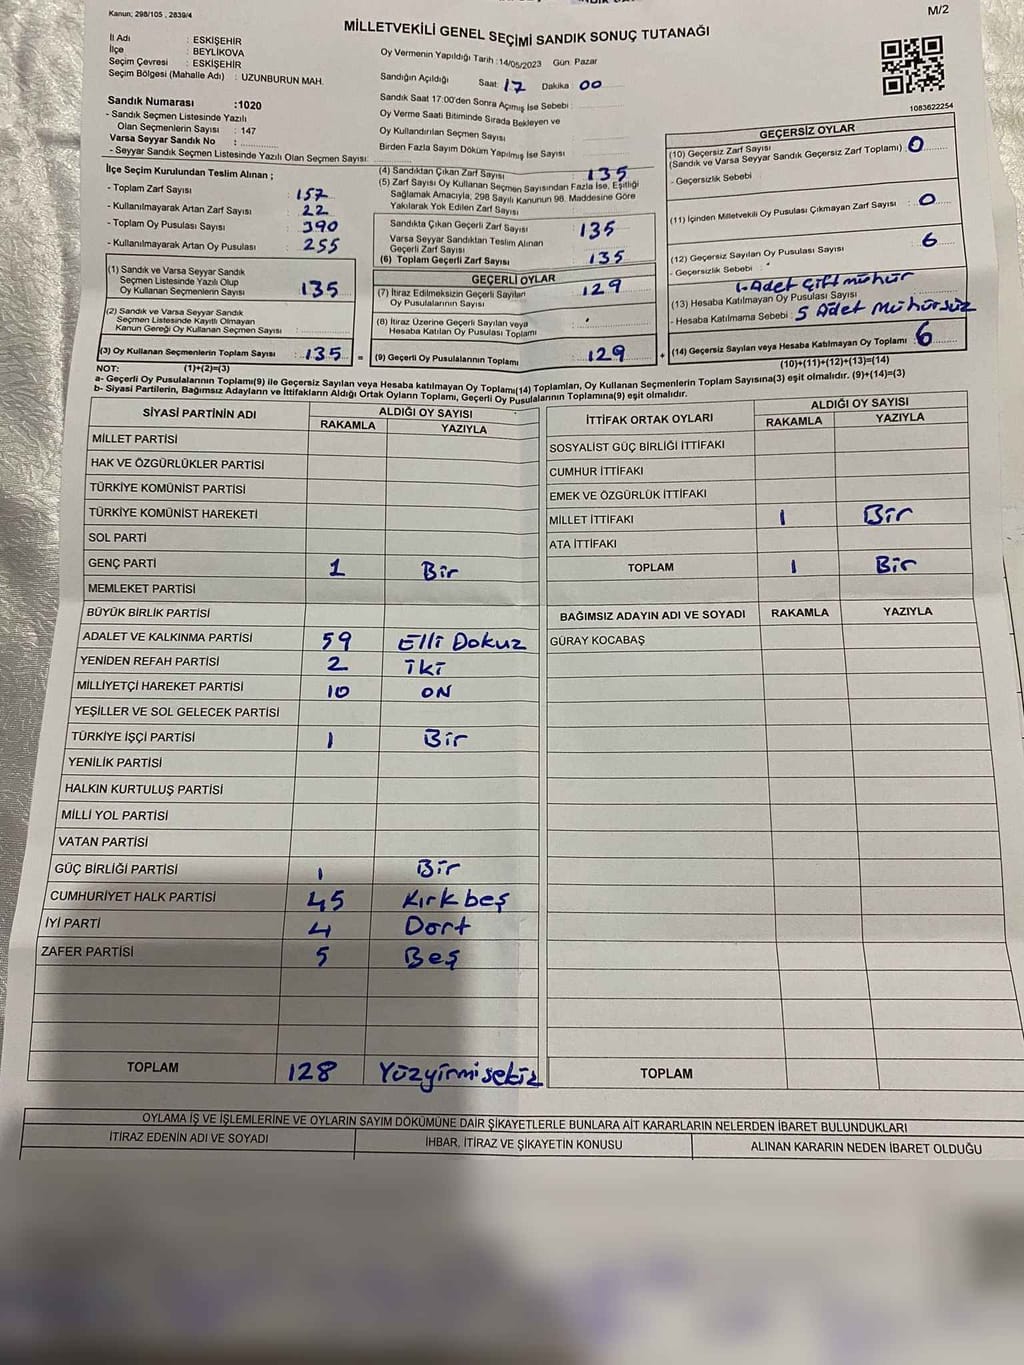 Kanun; 298/105 , 2839/4
M/2
MİLLETVEKİLİ GENEL SEÇİMİ SANDIK SONUÇ TUTANAĞI
İl Adı : ESKİŞEHİR
İlçe : BEYLİKOVA
Seçim Çevresi : ESKİŞEHİR
Seçim Bölgesi (Mahalle Adı) : UZUNBURUN MAH.
Sandık Numarası :1020
- Sandık Seçmen Listesinde Yazılı
Olan Seçmenlerin Sayısı : 147
Varsa Seyyar Sandık No :
- Seyyar Sandık Seçmen Listesinde Yazılı Olan Seçmen Sayısı:
Oy Vermenin Yapıldığı Tarih :14/05/2023 Gün: Pazar
Sandığın Açıldığı Saat: 17 Dakika: 00
Sandık Saat 17:00'den Sonra Açımış İse Sebebi :
Oy Verme Saati Bitiminde Sırada Bekleyen ve
Oy Kullandırılan Seçmen Sayısı
Birden Fazla Sayım Döküm Yapılmış İse Sayısı :
1083622254
İlçe Seçim Kurulundan Teslim Alınan ;
- Toplam Zarf Sayısı : 157
- Kullanılmayarak Artan Zarf Sayısı : 22
- Toplam Oy Pusulası Sayısı : 390
- Kullanılmayarak Artan Oy Pusulası : 255
(1) Sandık ve Varsa Seyyar Sandık
Seçmen Listesinde Yazılı Olup
Oy Kullanan Seçmenlerin Sayısı : 135
(2) Sandık ve Varsa Seyyar Sandık
Seçmen Listesinde Kayıtlı Olmayan
Kanun Gereği Oy Kullanan Seçmen Sayısı :
(3) Oy Kullanan Seçmenlerin Toplam Sayısı : 135 =
(4) Sandıktan Çıkan Zarf Sayısı : 135
(5) Zarf Sayısı Oy Kullanan Seçmen Sayısından Fazla İse, Eşitliği
Sağlamak Amacıyla, 298 Sayılı Kanunun 98. Maddesine Göre
Yakılarak Yok Edilen Zarf Sayısı :
Sandıkta Çıkan Geçerli Zarf Sayısı : 135
Varsa Seyyar Sandıktan Teslim Alınan
Geçerli Zarf Sayısı :
(6) Toplam Geçerli Zarf Sayısı : 135
GEÇERLİ OYLAR
(7) İtiraz Edilmeksizin Geçerli Sayılan
Oy Pusulasının Sayısı : 129
(8) İtiraz Üzerine Geçerli Sayılan veya
Hesaba Katılan Oy Pusulası Toplamı :
(9) Geçerli Oy Pusulalarının Toplamı : 129 +
GEÇERSİZ OYLAR
(10) Geçersiz Zarf Sayısı
(Sandık ve Varsa Seyyar Sandık Geçersiz Zarf Toplamı) : 0
- Geçersizlik Sebebi :
(11) İçinden Milletvekili Oy Pusulası Çıkmayan Zarf Sayısı : 0
(12) Geçersiz Sayılan Oy Pusulası Sayısı : 6
- Geçersizlik Sebebi :
1-Adet Çift mühür
(13) Hesaba Katılmayan Oy Pusulası Sayısı
- Hesaba Katılmama Sebebi : 5 Adet Mühürsüz
(14) Geçersiz Sayılan veya Hesaba Katılmayan Oy Toplamı : 6
NOT: (1)+(2)=(3)
(10)+(11)+(12)+(13)=(14)
a- Geçerli Oy Pusulalarının Toplamı(9) ile Geçersiz Sayılan veya Hesaba katılmayan Oy Toplamı(14) Toplamları, Oy Kullanan Seçmenlerin Toplam Sayısına(3) eşit olmalıdır. (9)+(14)=(3)
b- Siyasi Partilerin, Bağımsız Adayların ve İttifakların Aldığı Ortak Oyların Toplamı, Geçerli Oy Pusulalarının Toplamına(9) eşit olmalıdır.
SİYASİ PARTİNİN ADI ALDIĞI OY SAYISI
RAKAMLA YAZIYLA
MİLLET PARTİSİ
HAK VE ÖZGÜRLÜKLER PARTİSİ
TÜRKİYE KOMÜNİST PARTİSİ
TÜRKİYE KOMÜNİST HAREKETİ
SOL PARTİ
GENÇ PARTİ 1 Bir
MEMLEKET PARTİSİ
BÜYÜK BİRLİK PARTİSİ
ADALET VE KALKINMA PARTİSİ 59 Elli Dokuz
YENİDEN REFAH PARTİSİ 2 iki
MİLLİYETÇİ HAREKET PARTİSİ 10 ON
YEŞİLLER VE SOL GELECEK PARTİSİ
TÜRKİYE İŞÇİ PARTİSİ 1 Bir
YENİLİK PARTİSİ
HALKIN KURTULUŞ PARTİSİ
MİLLİ YOL PARTİSİ
VATAN PARTİSİ
GÜÇ BİRLİĞİ PARTİSİ 1 Bir
CUMHURİYET HALK PARTİSİ 45 Kırkbeş
İYİ PARTİ 4 Dört
ZAFER PARTİSİ 5 Beş
TOPLAM 128 Yüzyirmisekiz
İTTİFAK ORTAK OYLARI ALDIĞI OY SAYISI
RAKAMLA YAZIYLA
SOSYALİST GÜÇ BİRLİĞİ İTTİFAKI
CUMHUR İTTİFAKI
EMEK VE ÖZGÜRLÜK İTTİFAKI
MİLLET İTTİFAKI 1 Bir
ATA İTTİFAKI
TOPLAM 1 Bir
BAĞIMSIZ ADAYIN ADI VE SOYADI RAKAMLA YAZIYLA
GÜRAY KOCABAŞ
TOPLAM
OYLAMA İŞ VE İŞLEMLERİNE VE OYLARIN SAYIM DÖKÜMÜNE DAİR ŞİKAYETLERLE BUNLARA AİT KARARLARIN NELERDEN İBARET BULUNDUKLARI
İTİRAZ EDENİN ADI VE SOYADI İHBAR, İTİRAZ VE ŞİKAYETİN KONUSU ALINAN KARARIN NEDEN İBARET OLDUĞU